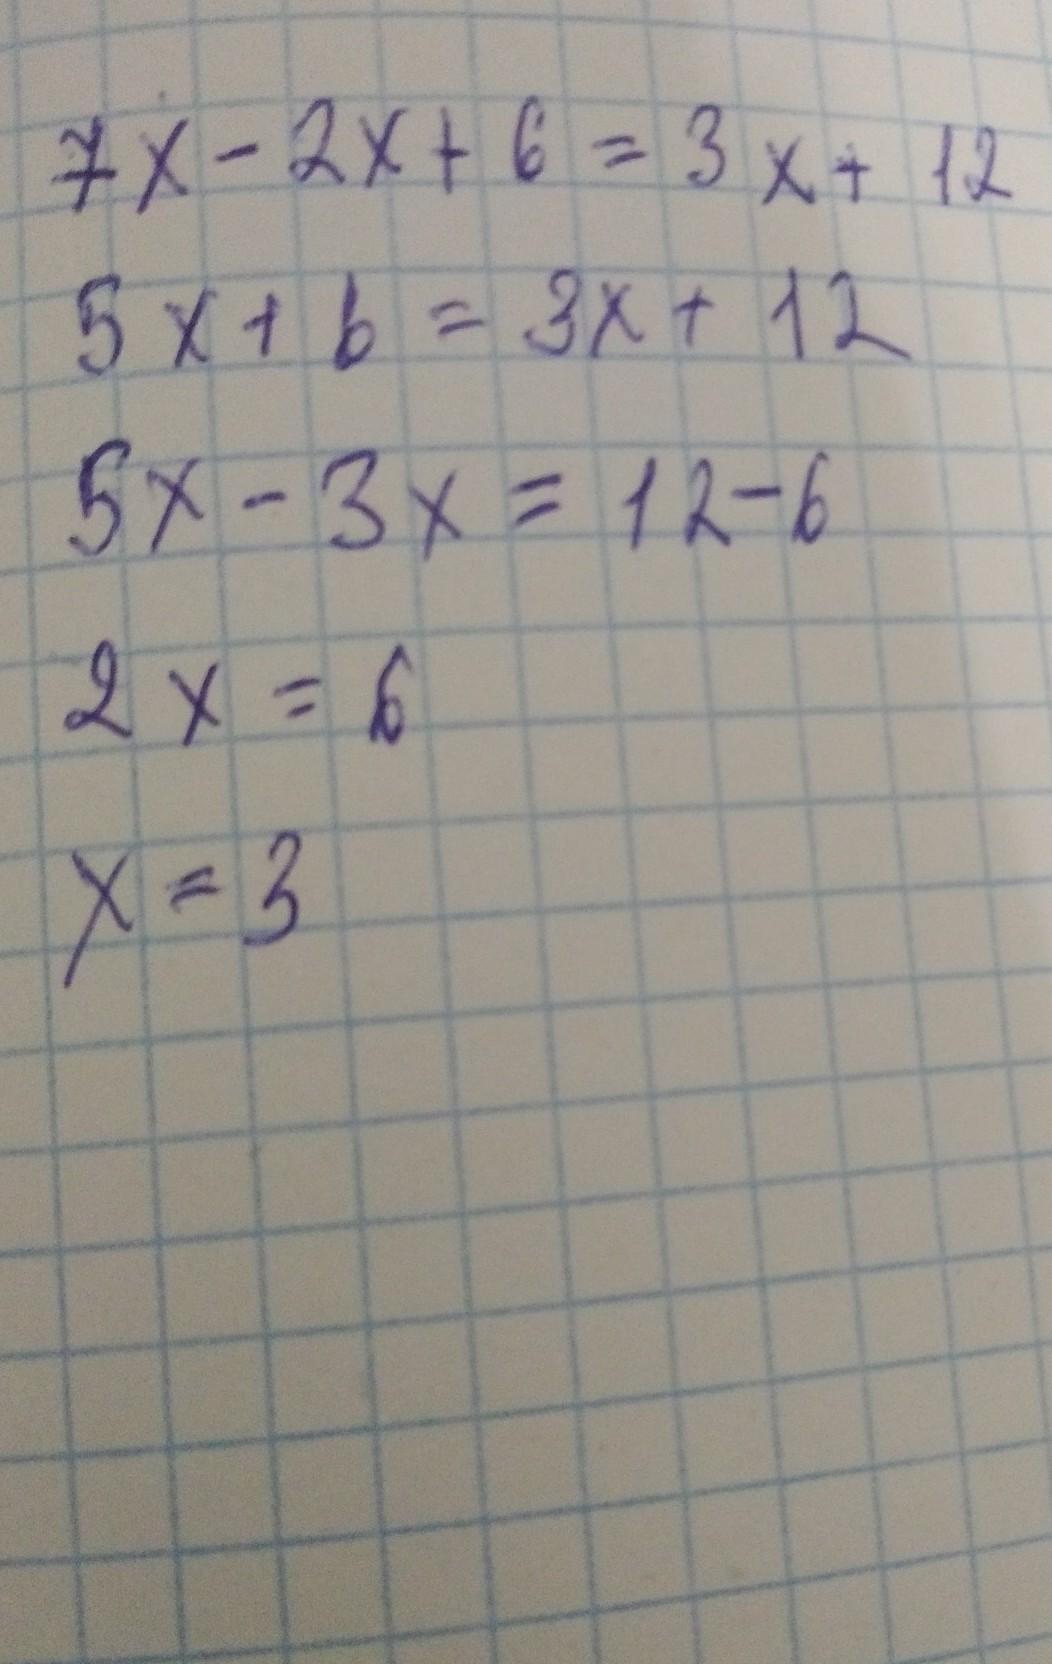 7x - 2x + 6 = 3x + 12
5x + 6 = 3x + 12
5x - 3x = 12 - 6
2x = 6
x = 3